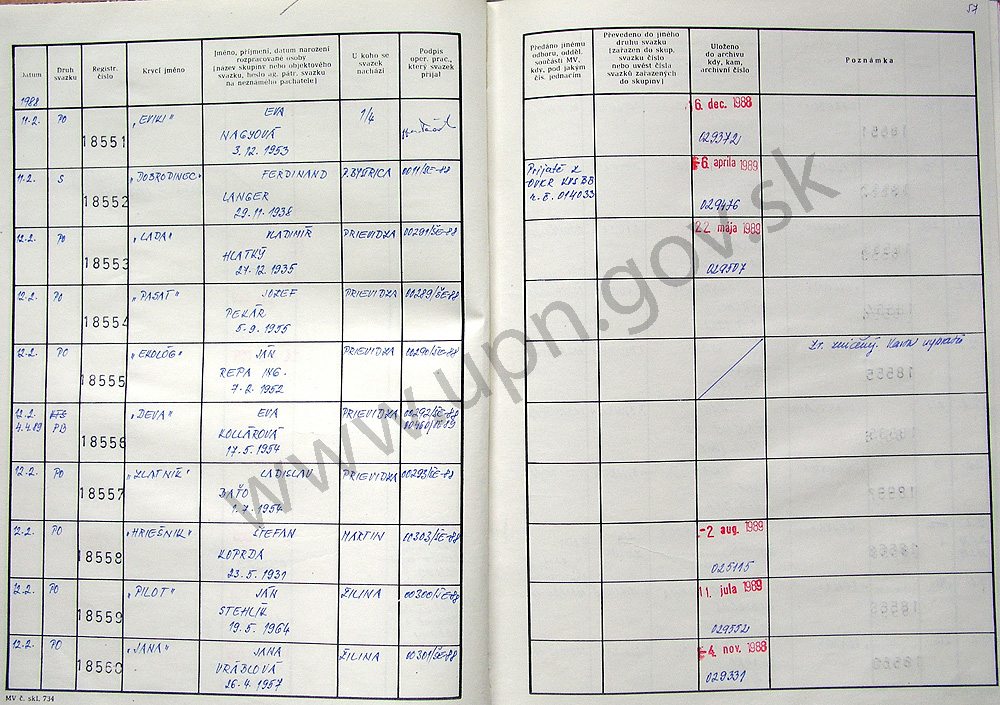 57
Datum
Druh svazku
Registr. číslo
Krycí jméno
Jméno, příjmení, datum narození
rozpracované osoby
(název skupiny nebo objektového
svazku, heslo ag. pátr. svazku
na neznámého pachatele)
U koho se
svazek
nachází
Podpis
oper. prac.,
který svazek
přijal
Předáno jinému
odboru, odděl.
součásti MV,
kdy, pod jakým
čís. jednacím
Převedeno do jiného
druhu svazku
(zařazen do skup.
svazku číslo
nebo uvést čísla
svazků zařazených
do skupiny)
Uloženo
do archivu
kdy, kam,
archivní číslo
Poznámka
1988
11.2. PO 18551 „EVIKI" EVA 1/4 6. dec. 1988
NAGYOVÁ
3.12.1953 029372
11.2. S 18552 „DOBRODINEC" FERDINAND P.BYSTRICA 0011/ŠE-88 Prijaté z -6. apríla 1989
LANGER
29.11.1938 č. 014033 029476
12.2. PO 18553 „LADA" VLADIMÍR PRIEVIDZA 00291/ŠE-88 22. mája 1989
HLATKÝ
27.12.1935 029507
12.2. PO 18554 „PASAT" JOZEF PRIEVIDZA 00289/ŠE-88
PEKÁR
5.9.1955
12.2. PO 18555 „EKOLÓG" JÁN PRIEVIDZA 00290/ŠE-88
REPA ING.
7.2.1952
12.2. KTS 18556 „DEVA" EVA PRIEVIDZA 00292/ŠE-88
4.4.89 PB KOLLÁROVÁ
17.5.1954
12.2. PO 18557 „ZLATNÍK" LADISLAV PRIEVIDZA 00293/ŠE-88
BAŤO
1.7.1954
12.2. PO 18558 „HRIEŠNIK" ŠTEFAN MARTIN 00303/ŠE-88 -2. aug. 1989
KOPRDA
23.5.1931 025115
12.2. PO 18559 „PILOT" JÁN ŽILINA 00300/ŠE-88 11. júla 1989
STEHLÍK
19.5.1964 029552
12.2. PO 18560 „JANA" JANA ŽILINA 00301/ŠE-88 -4. nov. 1988
VRÁBLOVÁ
26.4.1957 029331
MV č. skl. 734
www.upn.gov.sk